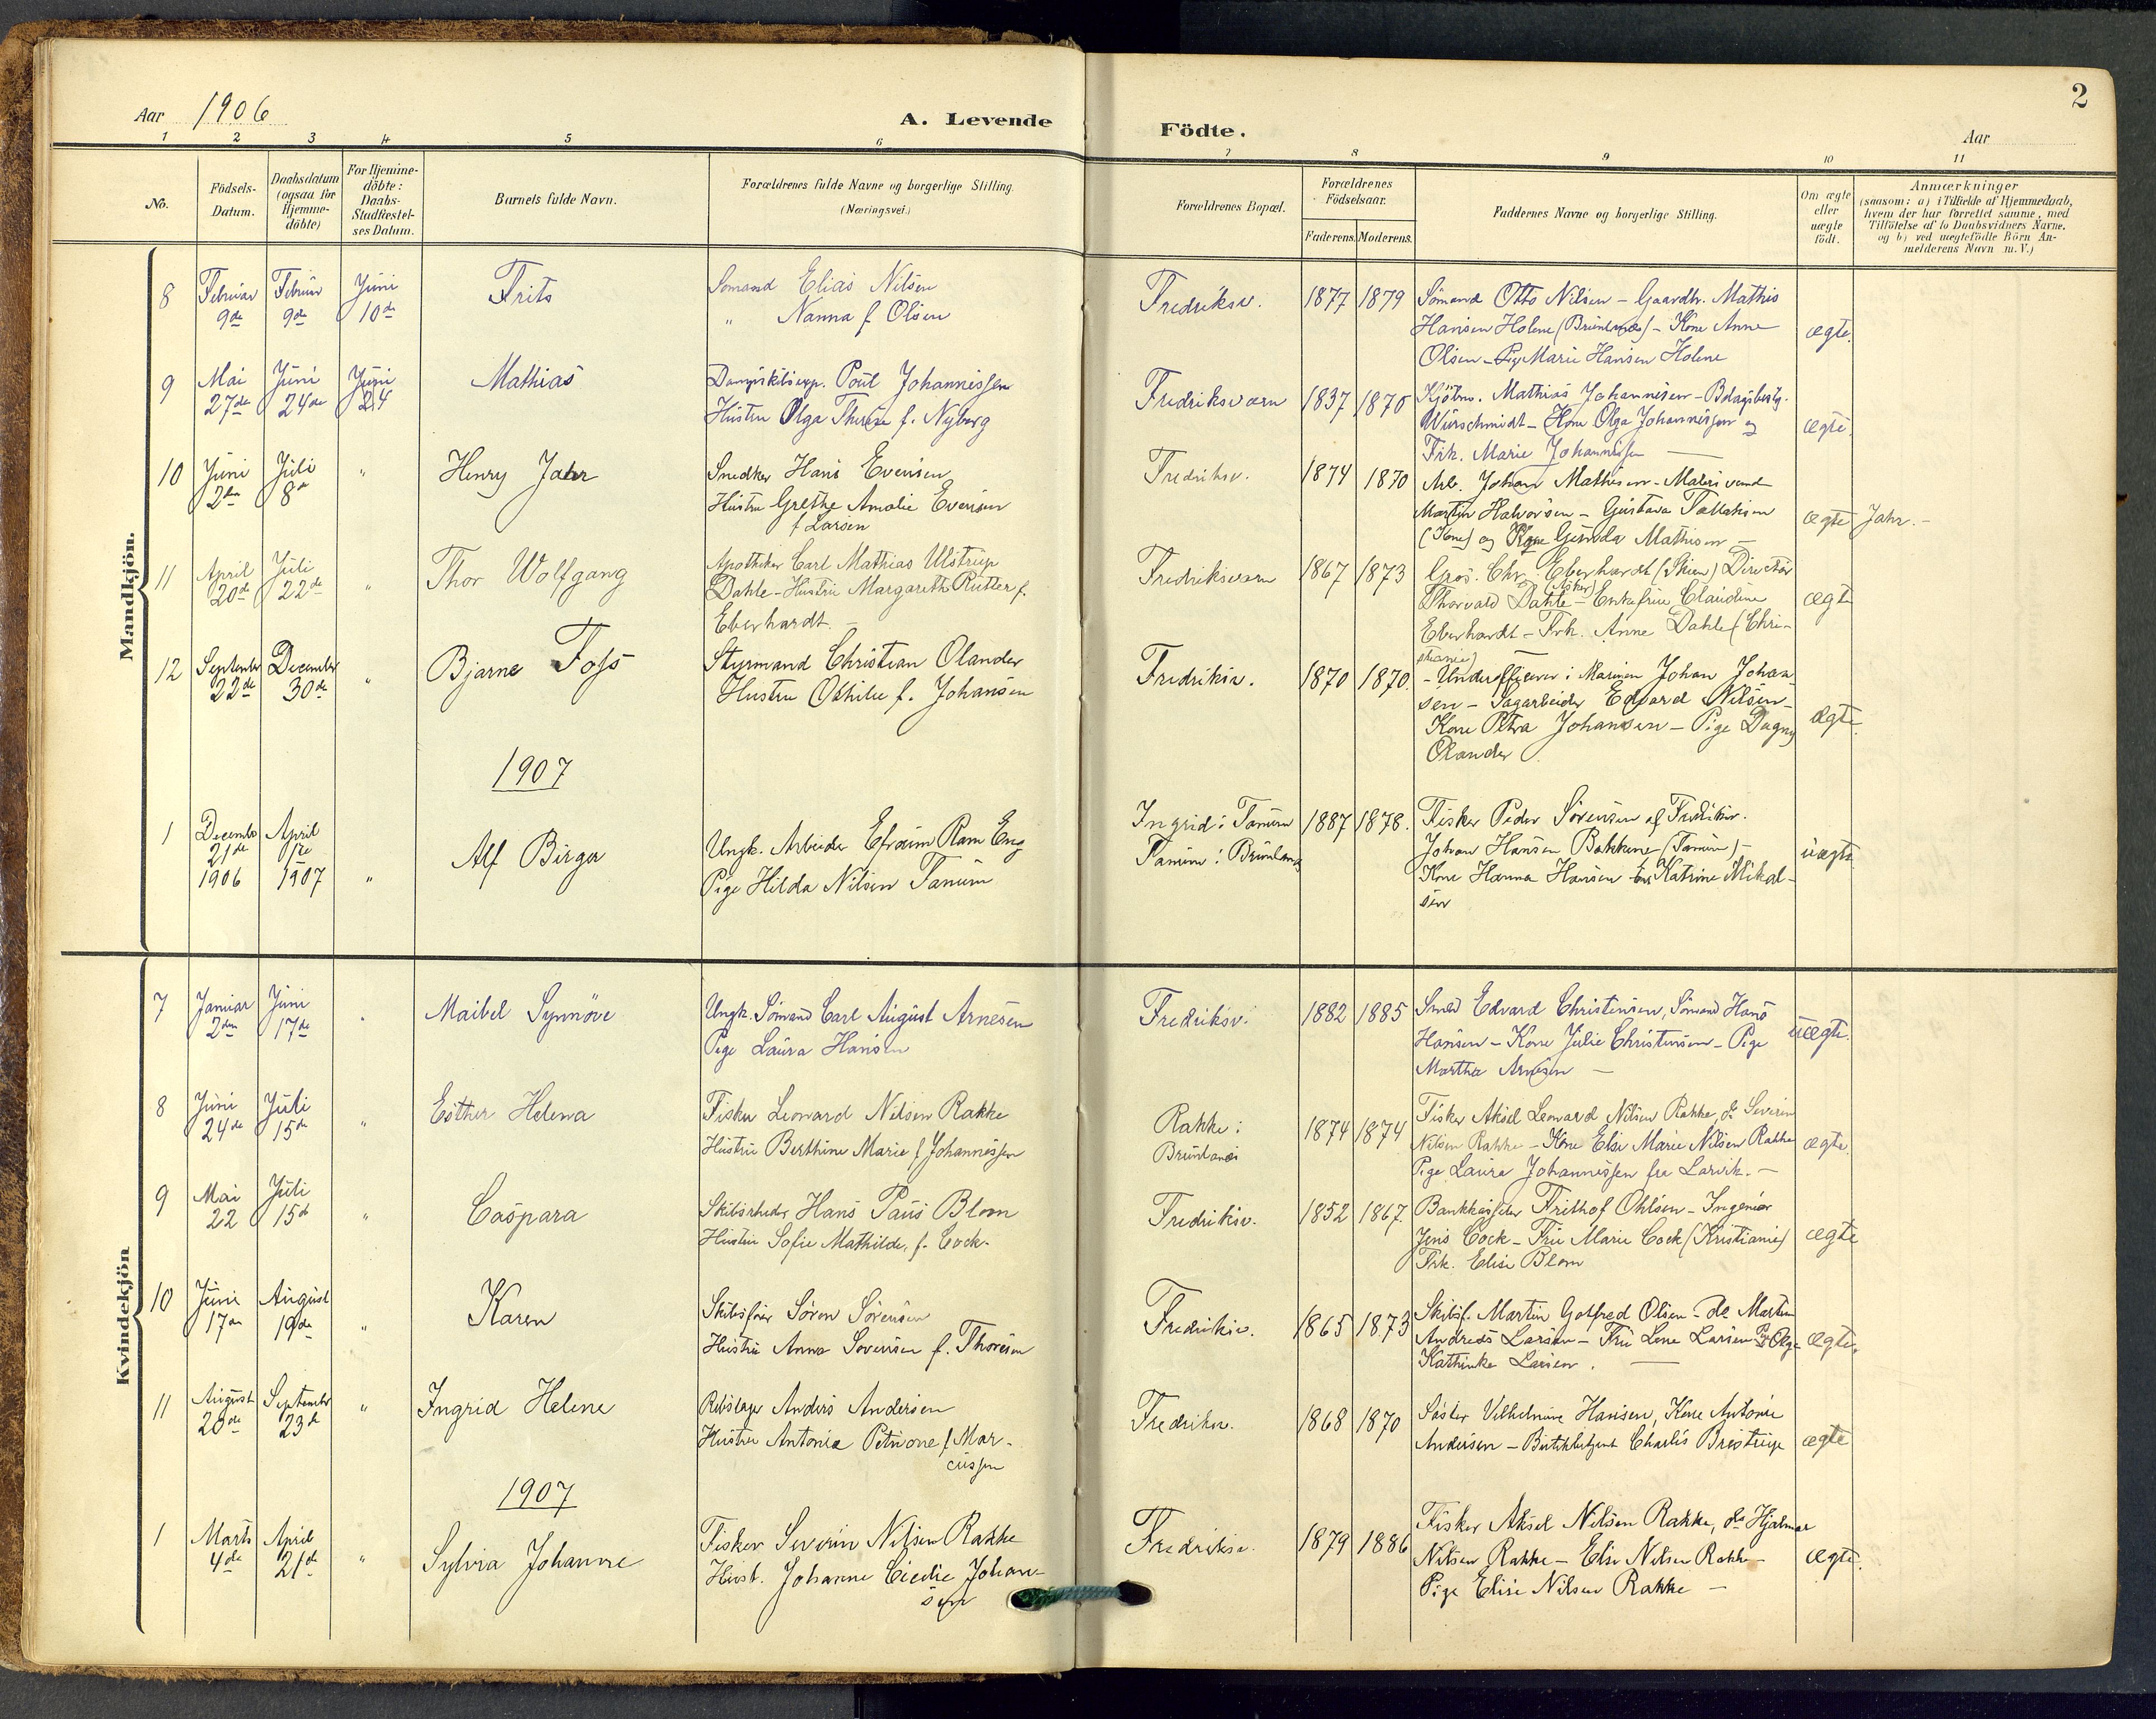 2
Aar 1906
A. Levende Födte.
Aar
1 2 3 4 5 6 7 8 9 10 11
No.
Födsels-Datum.
Daabsdatum (ogsaa for Hjemme-döbte)
For Hjemme-döbte: Daabs-Stadfæstel-ses Datum.
Barnets fulde Navn.
Forældrenes fulde Navne og borgerlige Stilling. (Næringsvei.)
Forældrenes Bopæl.
Forældrenes Födselsaar.
Faderens. Moderens.
Faddernes Navne og borgerlige Stilling.
Om ægte eller uægte födt.
Anmærkninger
(saasom: a) i Tilfælde af Hjemmedaab,
hvem der har forrettet samme, med
Tilföielse af to Daabsvidners Navne.
og b) ved uægtefödte Börn An-
melderens Navn m. V.)
Mandkjön.
8 Februar 9de Februar 9de Juni 10de Frits
Sömand Elias Nilsen
" Nanna f. Olsen
Fredriksv. 1877 1879
Sömand Otto Nilsen - Gaardbr. Mathis
Hansen Holene (Brunlanæs) - Kone Anne
Olsen - Pige Marie Hansen Holene
ægte.
9 Mai 27de Juni 24de Juni 24 Mathias
Dampskibsexp. Poul Johannessen
Hustru Olga Therese f. Nyborg
Fredriksværn 1837 1870
Kjöbm. Mathias Johannesen -
Würschmidt - Kone Olga Johannessen og
Frk. Marie Johannessen
ægte.
10 Juni 2den Juli 8de " Henry Jahr
Snedker Hans Evensen
Hustru Grethe Amalie Evensen
f. Larsen
Fredriksv. 1874 1870
Arb. Johan Mathisen - Matrisvend
Martin Halvorsen - Gustava Tallaksen
(Kone) og Kone Gunda Mathisen -
ægte Jahr. -
11 April 20de Juli 22de " Thor Wolfgang
Apotheker Carl Mathias Ulstrup
Dahle - Hustru Margareth Rutter f.
Eberhardt. -
Fredriksværn 1867 1873
Gros. Chr. Eberhardt (Skien) Direktör
Thorvald Dahle (Asker) - Enkefrue Claudine
Eberhardt - Frk. Anne Dahle (Chri-
stiania)
ægte
12 September 22de December 30de " Bjarne Foss
Styrmand Christian Olander
Hustru Othilie f. Johansen
Fredriksv. 1870 1870.
- Underofficerer i Marinen Johan Johan-
sen - Sagarbeider Edvard Nilsen -
Kone Petra Johansen - Pige Dagny
Olander
ægte.
1907
1 December 21de 1906 April 1ste 1907 " Alf Birger
Ungk. Arbeider Efraim Ram Eng
Pige Hilda Nilsen Tanum
Ingrid i Tanum
Tanum i Brunlanæs
1887 1878.
Fisker Peder Sörensen af Fredriksv.
Johan Hansen Bakkene (Tanum) -
Kone Hanna Hansen Katrine Mikal-
sen
uægte.
Kvindekjön
7 Januar 2den Juni 17de " Maibel Synnöve
Ungk. Sömand Carl August Arnesen
Pige Laura Hansen
Fredriksv. 1882 1885
Smed Edvard Christensen, Sömand Hans
Hansen - Kone Julie Christensen - Pige
Martha Arnesen -
uægte.
8 Juni 24de Juli 15de " Esther Helena
Fisker Leonard Nilsen Rakke
Hustru Berthine Marie f. Johannessen
Rakke i
Brunlanæs
1874 1874
Fisker Aksel Leonard Nilsen Rakke, do Severin
Nilsen Rakke - Kone Elise Marie Nilsen Rakke
Pige Laura Johannessen fra Larvik. -
ægte.
9 Mai 22 Juli 15de " Caspara
Skibsrheder Hans Paus Blom
Hustru Sofie Mathilde, f. Cock.
Fredriksv. 1852 1867.
Bankkasserer Frithof Ohlsen - Ingeniör
Jens Cock - Frue Marie Cock (Kristiania)
Frk. Elise Blom
ægte
10 Juni 17de August 19de " Karen
Skibsförer Sören Sörensen
Hustru Anna Sörensen f. Thoresen
Fredriksv. 1865 1873
Skibsf. Martin Gotfred Olsen - do Martin
Andreas Larsen - Fru Lene Larsen
Kathinka Larsen.
ægte.
11 August 20de September 23de " Ingrid Helene
Rebslager Anders Andersen
Hustru Antonia Petrione f. Mar-
cussen
Fredriksv. 1868 1870
Söster Vilhelmine Hansen, Kone Antonie
Andersen - Charles Brestrup
ægte
1907
1 Marts 4de April 21de " Sylvia Johanne
Fisker Severin Nilsen Rakke
Hust. Johanne Cicilie Johan-
sen
Fredriksv. 1879 1886
Fisker Aksel Nilsen Rakke, do Hjalmar
Nilsen Rakke - Elise Nilsen Rakke -
Pige Elise Nilsen Rakke -
ægte.